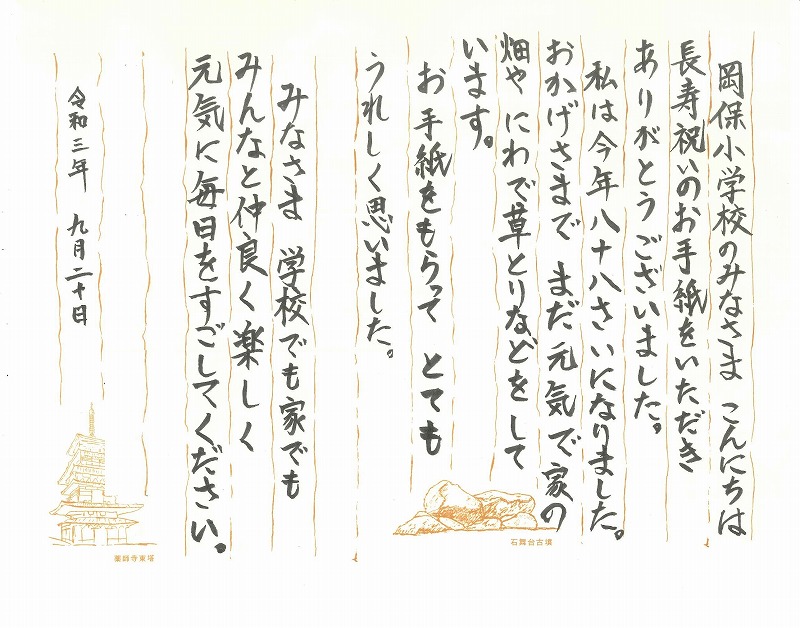 岡保小学校のみなさま こんにちは
長寿祝いのお手紙をいただき
ありがとうございました。
私は今年八十八さいになりました。
おかげさまで まだ元気で家の
畑や にわで草とりなどをして
います。
お手紙をもらって とても
うれしく思いました。
みなさま 学校でも家でも
みんなと仲良く楽しく
元気に毎日をすごしてください。
令和三年 九月二十日
石舞台古墳
薬師寺東塔